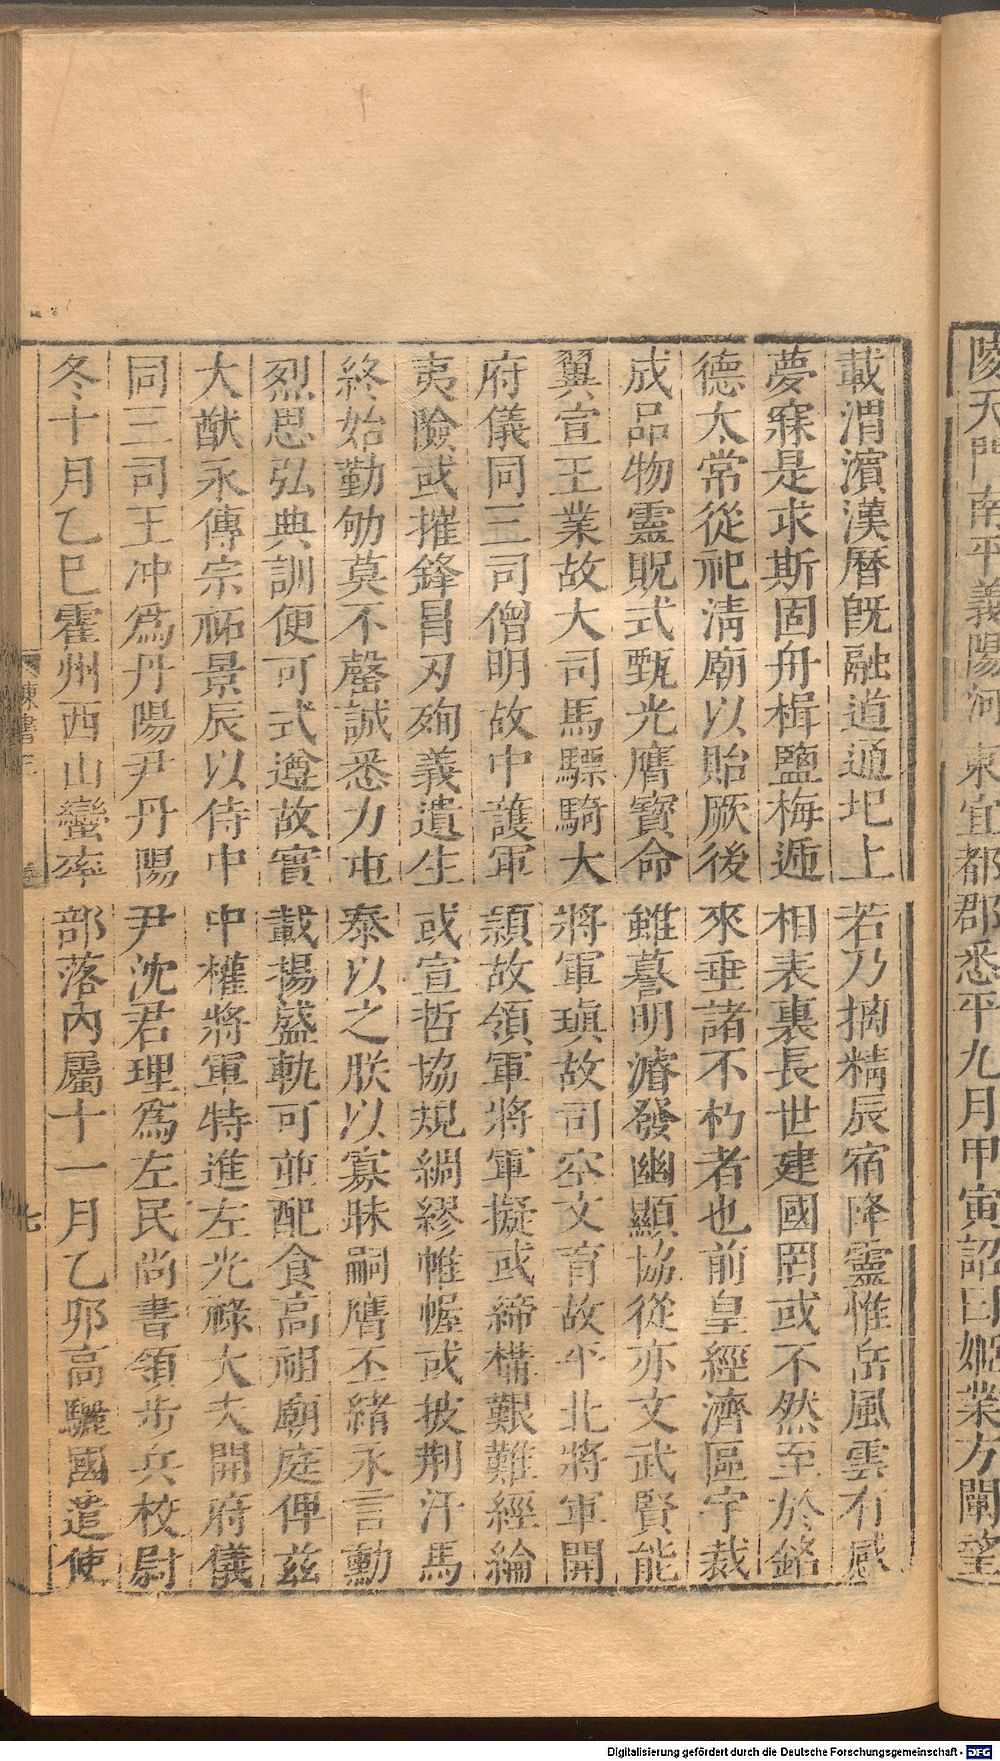 陵天門南平義陽河東宜都郡悉平九月甲寅詔曰姬業方闡望
載渭濱漢曆旣融道通圯上若乃摛精辰宿降靈惟岳風雲有感
夢寐是求斯固舟楫鹽梅遞相表裏長世建國罔或不然至於銘
德太常從祀淸廟以貽厥後來垂諸不朽者也前皇經濟區宇裁
成品物靈貺式甄光膺寶命雖謩明濬發幽顯協從亦文武賢能
翼宣王業故大司馬驃騎大將軍瑱故司空文育故平北將軍開
府儀同三司僧明故中護軍穎故領軍將軍擬或締構艱難經綸
夷險或摧鋒冒刃殉義遺生或宣哲協規綢繆帷幄或披荆汗馬
終始勤劬莫不罄誠悉力屯泰以之朕以寡昧嗣膺丕緒永言勳
烈思弘典訓便可式遵故實載揚盛軌可並配食高祖廟庭俾茲
大猷永傳宗祏景辰以侍中中權將軍特進左光祿大夫開府儀
同三司王冲爲丹陽尹丹陽尹沈君理爲左民尚書領步兵校尉
冬十月乙巳霍州西山蠻率部落內屬十一月乙卯高驪國遣使
陳書三 七
Digitalisierung gefördert durch die Deutsche Forschungsgemeinschaft - DFG